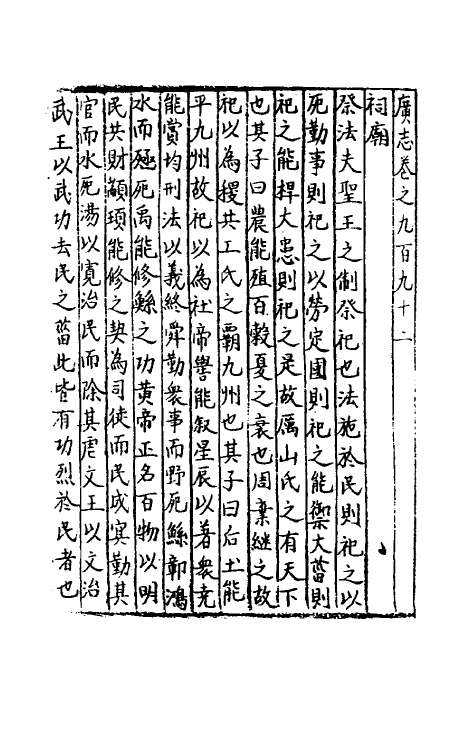 廣志卷之九百九十二
祠廟
祭法夫聖王之制祭祀也法施於民則祀之以
死勤事則祀之以勞定國則祀之能禦大菑則
祀之能捍大患則祀之是故厲山氏之有天下
也其子曰農能殖百穀夏之衰也周棄継之故
祀以為稷共工氏之霸九州也其子曰后土能
平九州故祀以為社帝嚳能叙星辰以著衆堯
能賞均刑法以義終舜勤衆事而野死鯀鄣鴻
水而殛死禹能修鯀之功黄帝正名百物以明
民共財顓頊能修之契為司徒而民成冥勤其
官而水死湯以寛治民而除其虐文王以文治
武王以武功去民之菑此皆有功烈於民者也